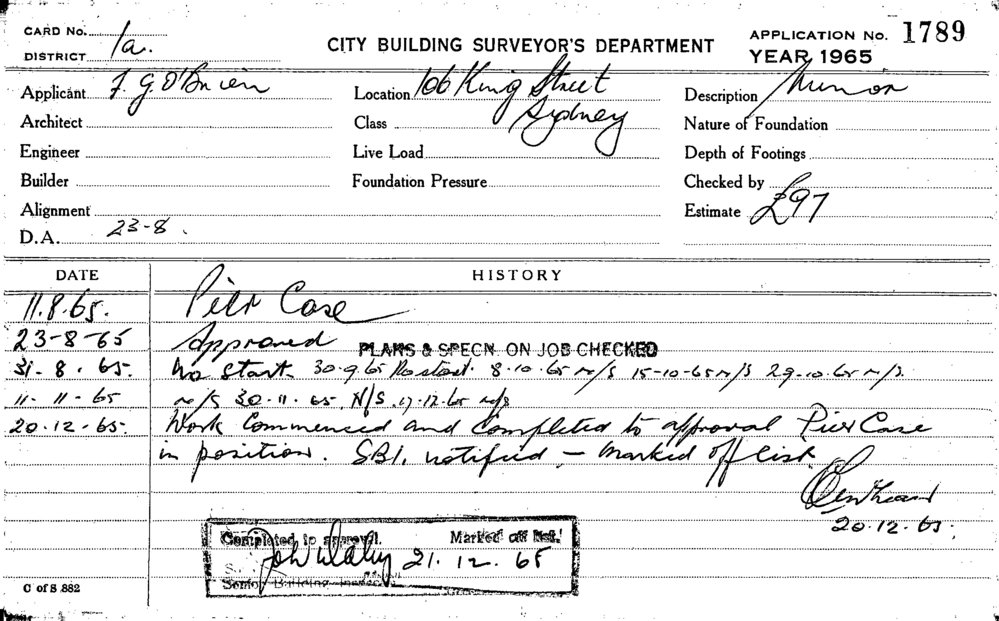 CARD No.
DISTRICT 1a.
CITY BUILDING SURVEYOR'S DEPARTMENT
APPLICATION No. 1789
YEAR 1965
Applicant F. G O'Brien
Location 166 King Street
Sydney
Description Minor
Architect
Class
Nature of Foundation
Engineer
Live Load
Depth of Footings
Builder
Foundation Pressure
Checked by
Alignment
Estimate £97
D.A. 23-8.
DATE
HISTORY
11.8.65. Pier Case
23-8-65 Approved
PLANS & SPECN. ON JOB CHECKED
31-8.65. No start. 30.9.65 No start. 8-10.65 n/s 15-10-65 n/s 29-10.65 n/s.
11-11-65 n/s 30.11.65. N/S. 17-12.65 n/s
20.12-65. Work Commenced and Completed to approval Pier Case
in position. SBI. notified - marked off list.
20.12.65.
Completed to approval. Marked off list.
21.12.65
Senior Building Inspector
C of S 882